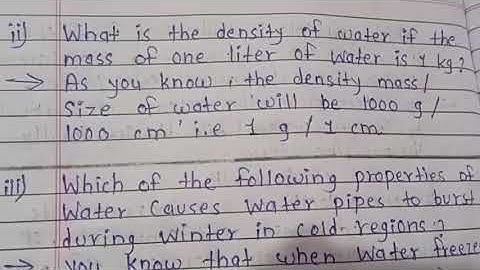 ii) What is the density of water if the
mass of one liter of water is 1 kg?
→ As you know, the density mass/
Size of water will be 1000 g/
1000 cm' i.e 1 g / 1 cm.
iii) Which of the following properties of
Water Causes Water pipes to burst
during Winter in cold-regions?
→ you know that when water freezes